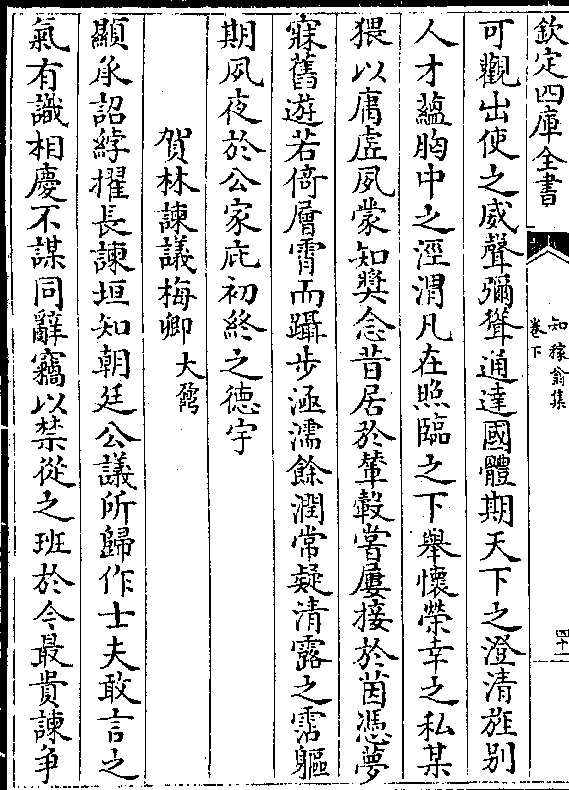 欽定四庫全書
知稼翁集
卷下
四十
可觀出使之威聲彌聳通達國體期天下之澄清旌别
人才蘊胸中之涇渭凡在照臨之下舉懷榮幸之私某
猥以庸虚夙蒙知奬念昔居於輦轂嘗屢接於茵憑夢
寐舊遊若倚層霄而躡步涵濡餘潤常疑清露之霑軀
期夙夜於公家庇初終之德宇
賀林諫議梅卿大鼐
顯承詔綍擢長諫垣知朝廷公議所歸作士夫敢言之
氣有識相慶不謀同辭竊以禁從之班於今最貴諫争